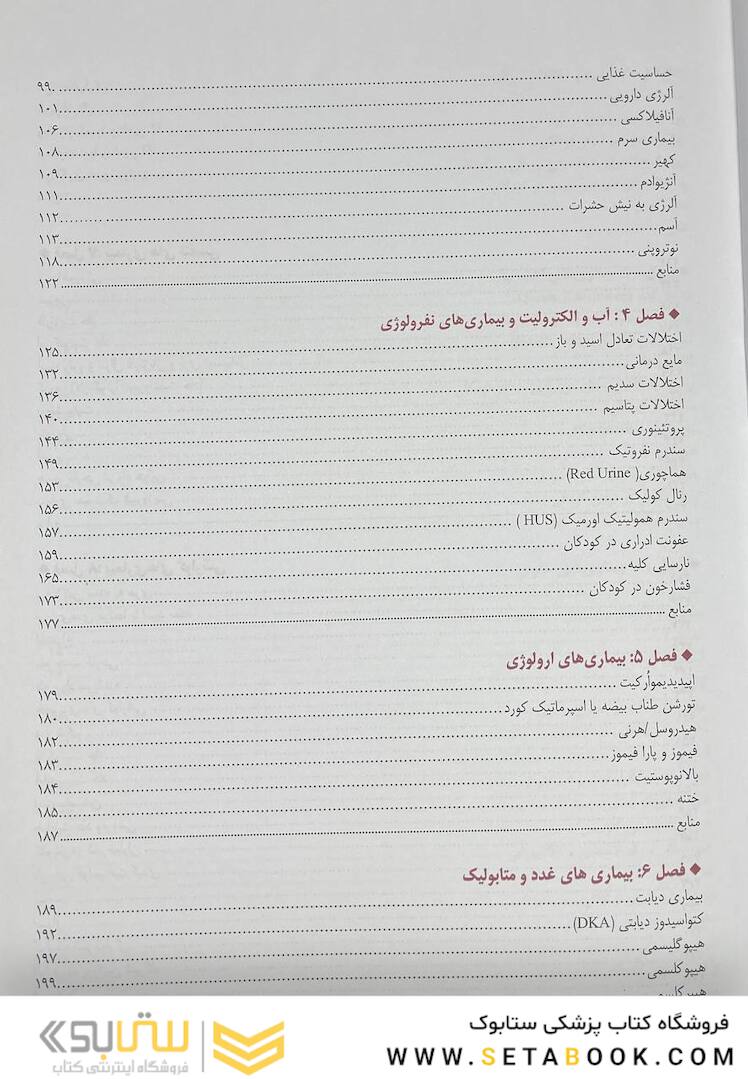 حساسیت غذایی ........ ۹۹
آلرژی دارویی ........ ۱۰۱
آنافیلاکسی ........ ۱۰۶
بیماری سرم ........ ۱۰۸
کهیر ........ ۱۰۹
آنژیوادم ........ ۱۱۱
آلرژی به نیش حشرات ........ ۱۱۲
آسم ........ ۱۱۳
نوتروپنی ........ ۱۱۸
منابع ........ ۱۲۲
◆ فصل ۴: آب و الکترولیت و بیماری‌های نفرولوژی
اختلالات تعادل اسید و باز ........ ۱۲۵
مایع درمانی ........ ۱۳۲
اختلالات سدیم ........ ۱۳۶
اختلالات پتاسیم ........ ۱۴۰
پروتئینوری ........ ۱۴۴
سندرم نفروتیک ........ ۱۴۹
هماچوری( Red Urine) ........ ۱۵۳
رنال کولیک ........ ۱۵۶
سندرم همولیتیک اورمیک (HUS ) ........ ۱۵۷
عفونت ادراری در کودکان ........ ۱۵۹
نارسایی کلیه ........ ۱۶۵
فشارخون در کودکان ........ ۱۷۳
منابع ........ ۱۷۷
◆ فصل ۵: بیماری‌های ارولوژی
اپیدیدیموأرکیت ........ ۱۷۹
تورشن طناب بیضه یا اسپرماتیک کورد ........ ۱۸۰
هیدروسل/هرنی ........ ۱۸۲
فیموز و پارا فیموز ........ ۱۸۳
بالانوپوستیت ........ ۱۸۴
ختنه ........ ۱۸۵
منابع ........ ۱۸۷
◆ فصل ۶: بیماری های غدد و متابولیک
بیماری دیابت ........ ۱۸۹
کتواسیدوز دیابتی (DKA) ........ ۱۹۲
هیپوگلیسمی ........ ۱۹۷
هیپوکلسمی ........ ۱۹۹
فروشگاه کتاب پزشکی ستابوک
WWW.SETABOOK.COM
ستابوک
فروشگاه اینترنتی کتاب